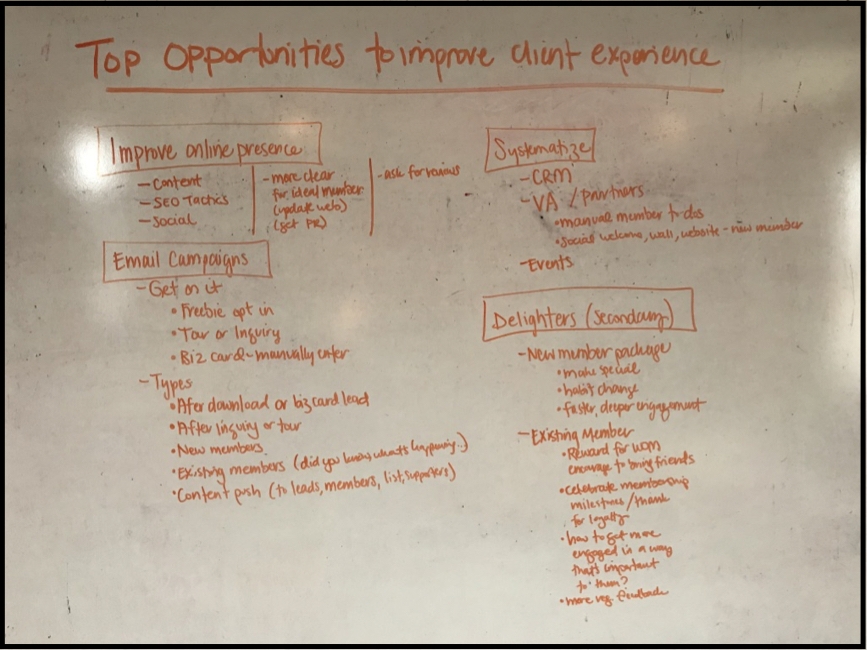 Top Opportunities to improve client experience
Improve online presence
- Content
- SEO Tactics
- Social
- more clear
for ideal member
(update web)
(get PR)
- ask for reviews
Email Campaigns
- Get on it
• Freebie opt in
• Tour or Inquiry
• Biz card - manually enter
- Types
• After download or biz card lead
• After inquiry or tour
• New members
• Existing members (did you know, what's happening..)
• Content push (to leads, members, list, supporters)
Systematize
- CRM
- VA / partners
• manual member to dos
• Social welcome, wall, website - new member
- Events
Delighters (secondary)
- New member package
• make special
• habit change
• faster, deeper engagement
- Existing Member
• Reward for WOM
encourage to bring friends
• celebrate membership
milestones / thank
for loyalty
• how to get more
engaged in a way
that's important
to them?
• more reg. feedback